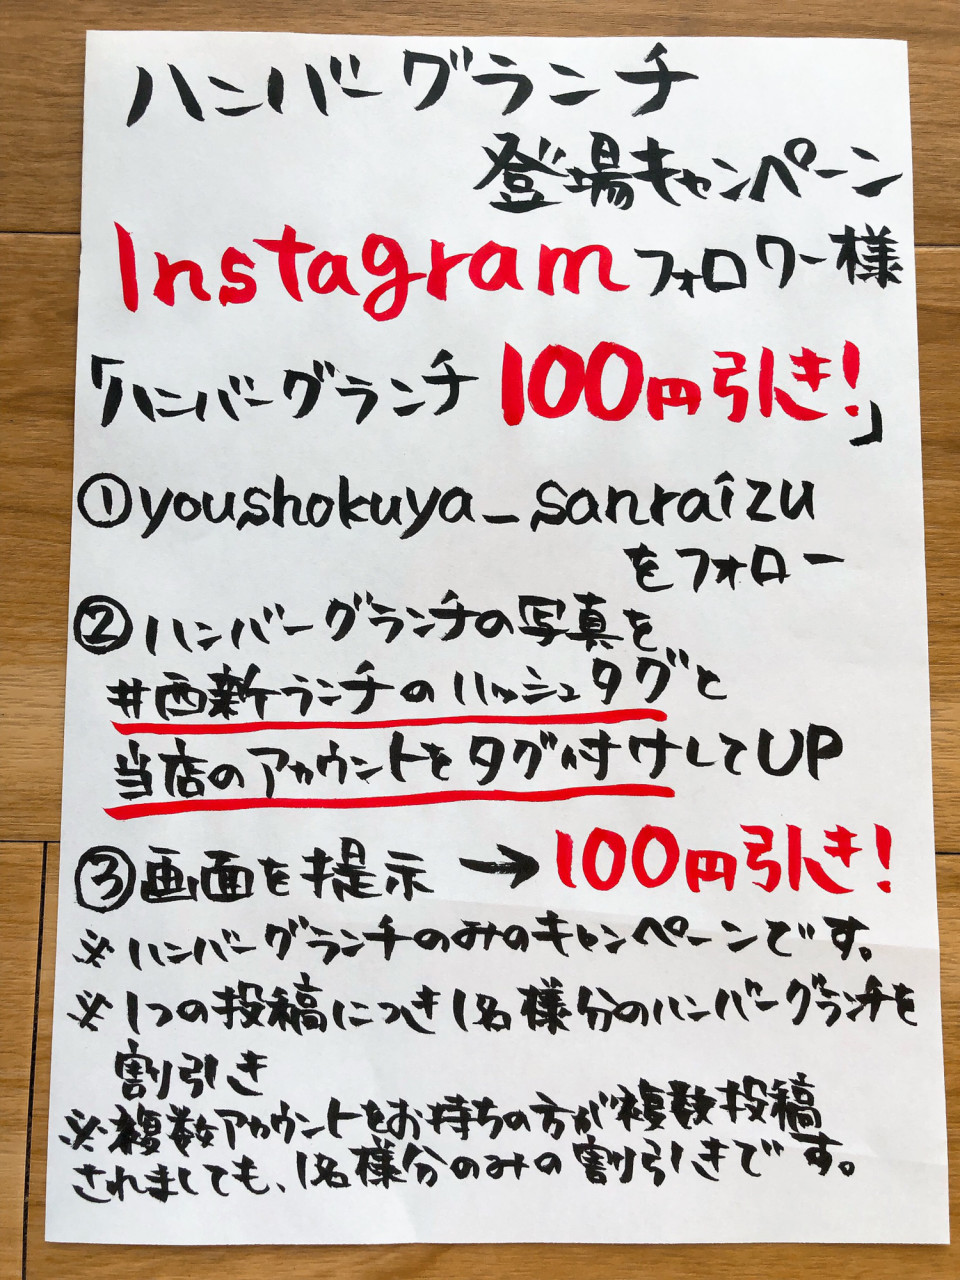 ハンバーグランチ
登場キャンペーン
Instagramフォロワー様
「ハンバーグランチ100円引き!」
①youshokuya_sanraizu
をフォロー
②ハンバーグランチの写真を
#西新ランチのハッシュタグと
当店のアカウントをタグ付けしてUP
③画面を提示→100円引き!
※ハンバーグランチのみのキャンペーンです。
※1つの投稿につき1名様分のハンバーグランチを
割引き
※複数アカウントをお持ちの方が複数投稿
されましても、1名様分のみの割引きです。